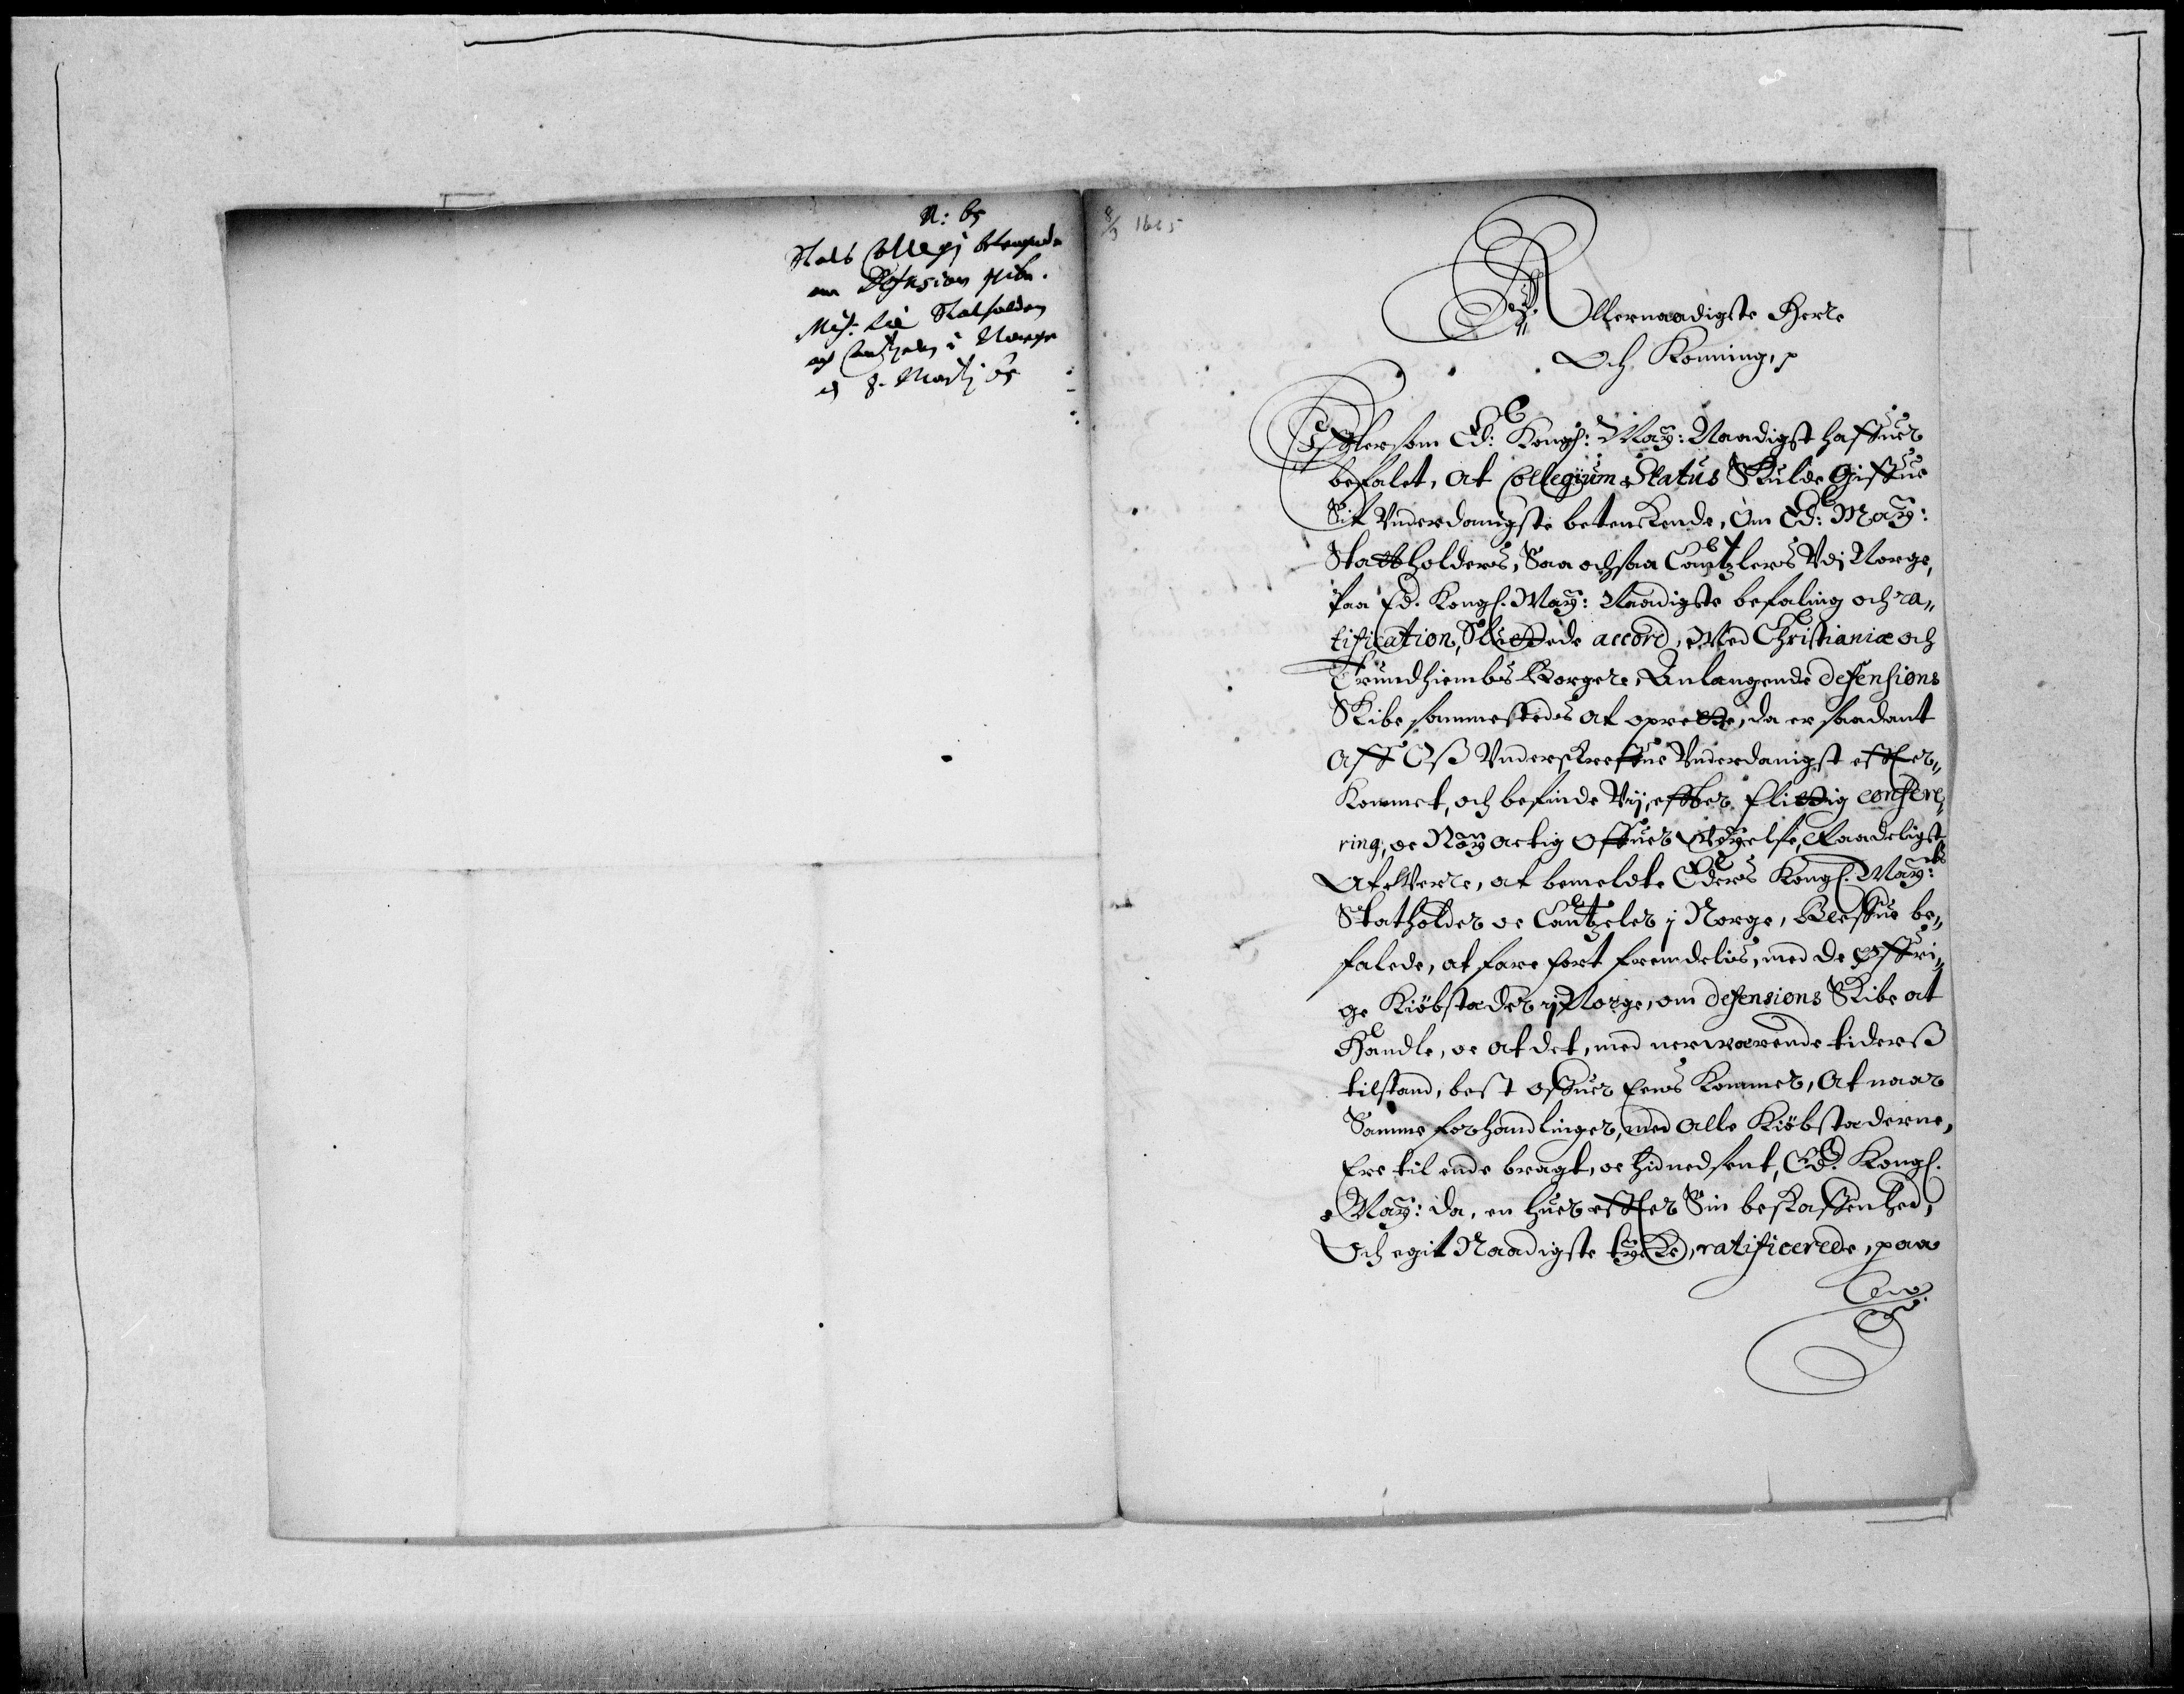 N: 65
Stats Collegj betengende
om Defension skibe.
Miss: til Statholderen
och Cantzeleren i Norge
d 8. Martij 65
8/3 1665
Allernaadigste Herre
Och Konning, p
Effter som Ed: Kongl: May: Naadigst haffuer
befalet, at Collegium Status Skulde Giffue
Sit Vnderdanigste betenckende, Om Ed: May:
Stattholders, Saa ochsaa Cantzlers Vdj Norge,
Paa Ed. Kongl. May: Naadigste befaling och ra„
tification, Sluttede accord, Med Christianiæ och
Trundhiembs Borgere, Anlangende defensions
Skibe sammesteds at oprette, da er saadant
Aff Oß Vnderskreffne Vnderdanigst effter„
Kommet, och befinde Vij, effter flittig confere„
ring, oc Nøyactig Offuer Veyelse, Raadeligst
At Verre, at bemeldte Eders Kongl. May:ts
Statholder oc Cantzeler j Norge, Bleffue be„
falede, at fare fort fremdelis, med de Øffri„
ge Kiöbstæder j Norge, om defensions Skibe at
Handle, oc at det, med nerwærende tiderß
tilstand, best offuer Eens Kommer, At naar
Samme forhandlinger, med Alle Kiöbstæderne,
Ere til ende bragt, oc hid nedsent, Ed. Kongl.
May: da, en huer effter Sin beskaffenhed,
Och egit Naadigste tycke, ratificerede, paa